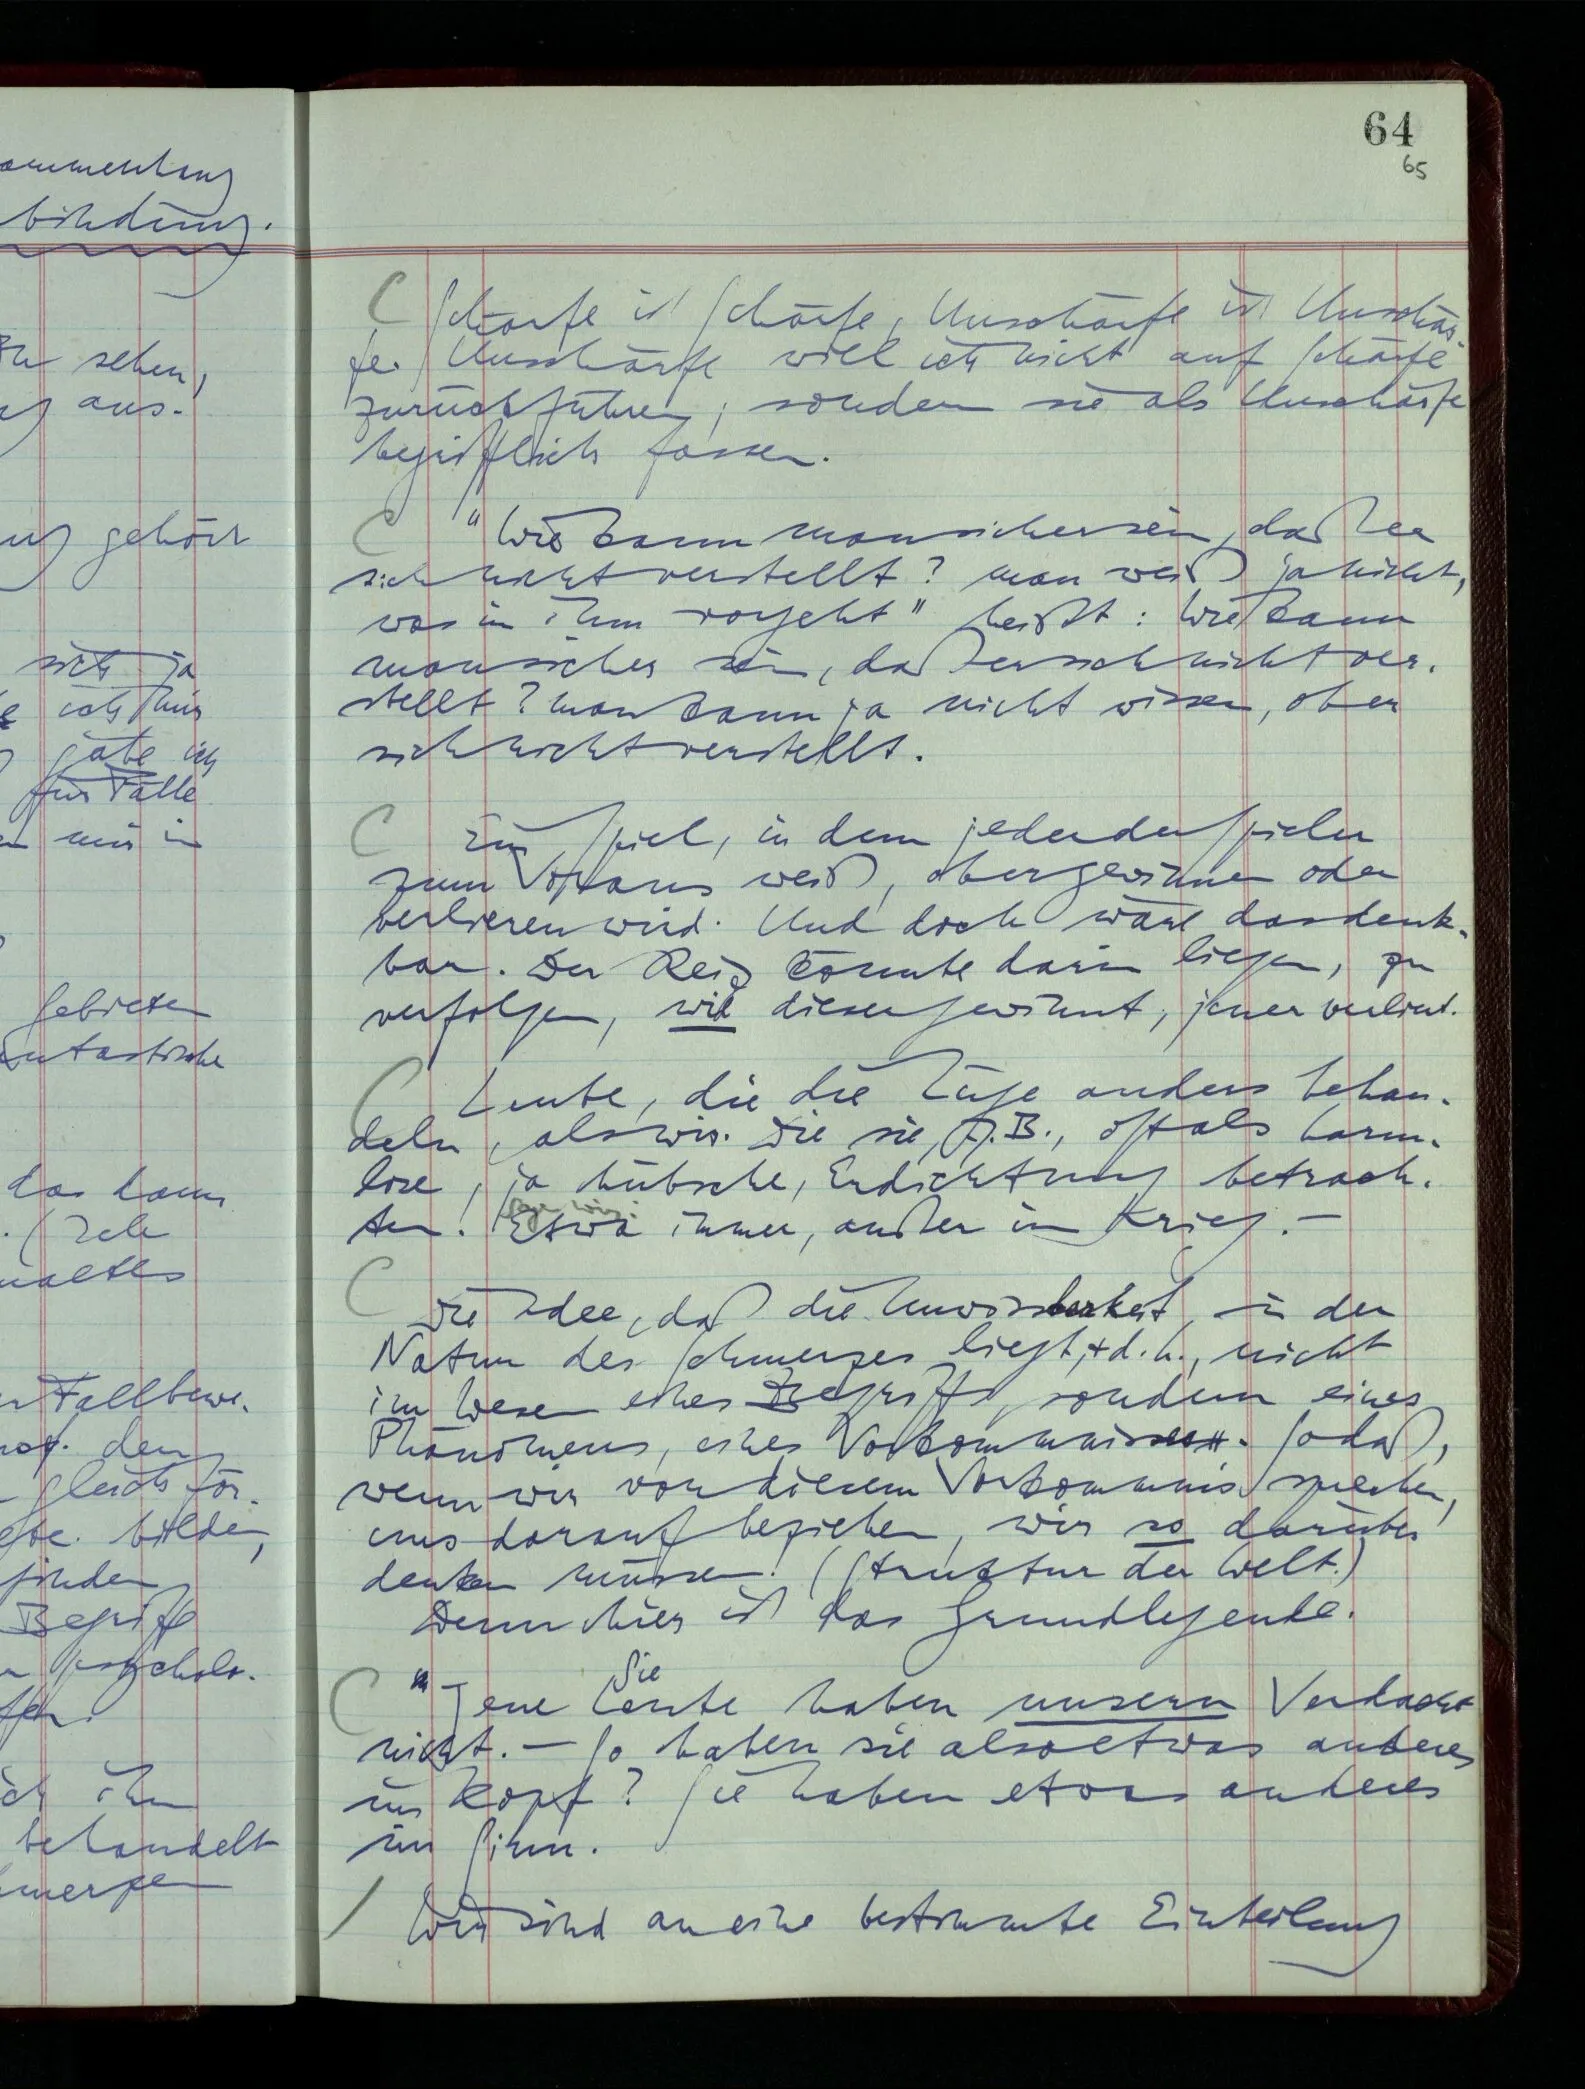 64
65
Schärfe ist Schärfe, Unschärfe ist Unschär-
fe. Unschärfe will ich nicht auf Schärfe
zurückführen, sondern sie als Unschärfe
begrifflich fassen.
"Wie kann man sicher sein, daß er
sich nicht verstellt? man weiß ja nicht,
was in ihm vorgeht" heißt: Wie kann
man sicher sein, daß er sich nicht ver-
stellt? man kann ja nicht wissen, ob er
sich nicht verstellt.
Ein Spiel, in dem jeder der Spieler
zum Voraus weiß, ob er gewinnen oder
verlieren wird. Und doch wäre das denk-
bar. Der Reiz könnte darin liegen, zu
verfolgen, wie dieser gewinnt, jener verliert.
Leute, die die Lüge anders behan-
deln, als wir. Die sie, z.B., oft als harm-
lose, ja hübsche, Erdichtung betrach-
ten!
Etwa immer, außer im Krieg. –
Die Idee, daß die Unwissbarkeit, in der
Natur des Schmerzes liegt, d.h., nicht
im Wesen eines Begriffs, sondern eines
Phänomens, eines Vorkommnisses. Sodaß,
wenn wir von diesem Vorkommnis sprechen,
uns darauf beziehen, wir so darüber
denken müssen! (Struktur der Welt.)
Denn hier ist das Grundlegende.
Sie
"Jene Leute haben unsern Verdacht
nicht. – So haben sie also etwas anderes
im Kopf? Sie haben etwas anderes
im Sinn.
Wir sind an eine bestimmte Einteilung
sehen,
aus.
gehört
sich ja
ich mir
gäbe ich
für Fälle
mir in
Gebieten
das kann
Fallbewe-
den
gleichför-
etc. bilden,
finden
Begriff
psycholo-
ich ihn
behandelt